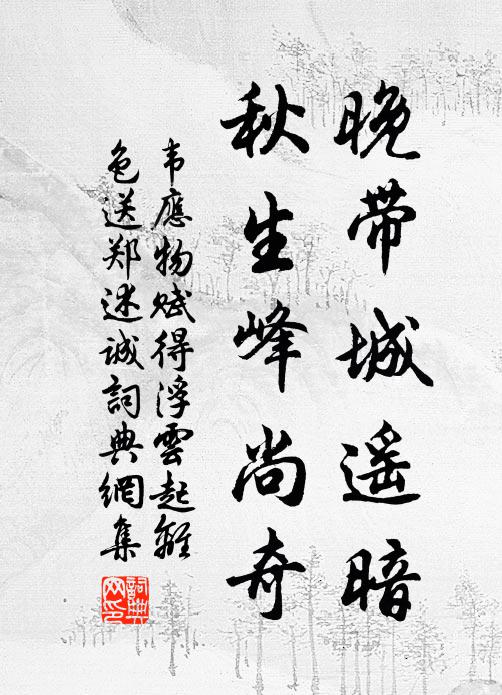 晚带城遥暗
秋生峰尚奇
韦應物赋得浮雲起離
色送郑述诚詞典網集